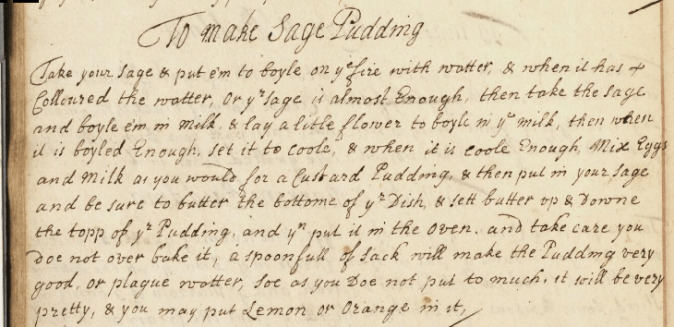 To make Sage Pudding
Take your sage & put em to boyle on ye fire with watter, & when it has
Colloured the watter, Or yr sage is almost Enough, then take the sage
and boyle em in milk & lay a litle flower to boyle in yr milk, then when
it is boyled Enough, set it to coole, & when it is coole Enough, Mix Eggs
and Milk as you would for a Custard Pudding, & then put in your sage
and be sure to butter the bottome of yr Dish, & sett butter up & Downe
the topp of yr Pudding, and yn put it in the Oven, and take care you
Doe not over bake it, a spoonfull of sack will make the Pudding very
good, or plague watter, soe as you Doe not put to much, it will be very
pretty, & you may put Lemon or Orange in it,